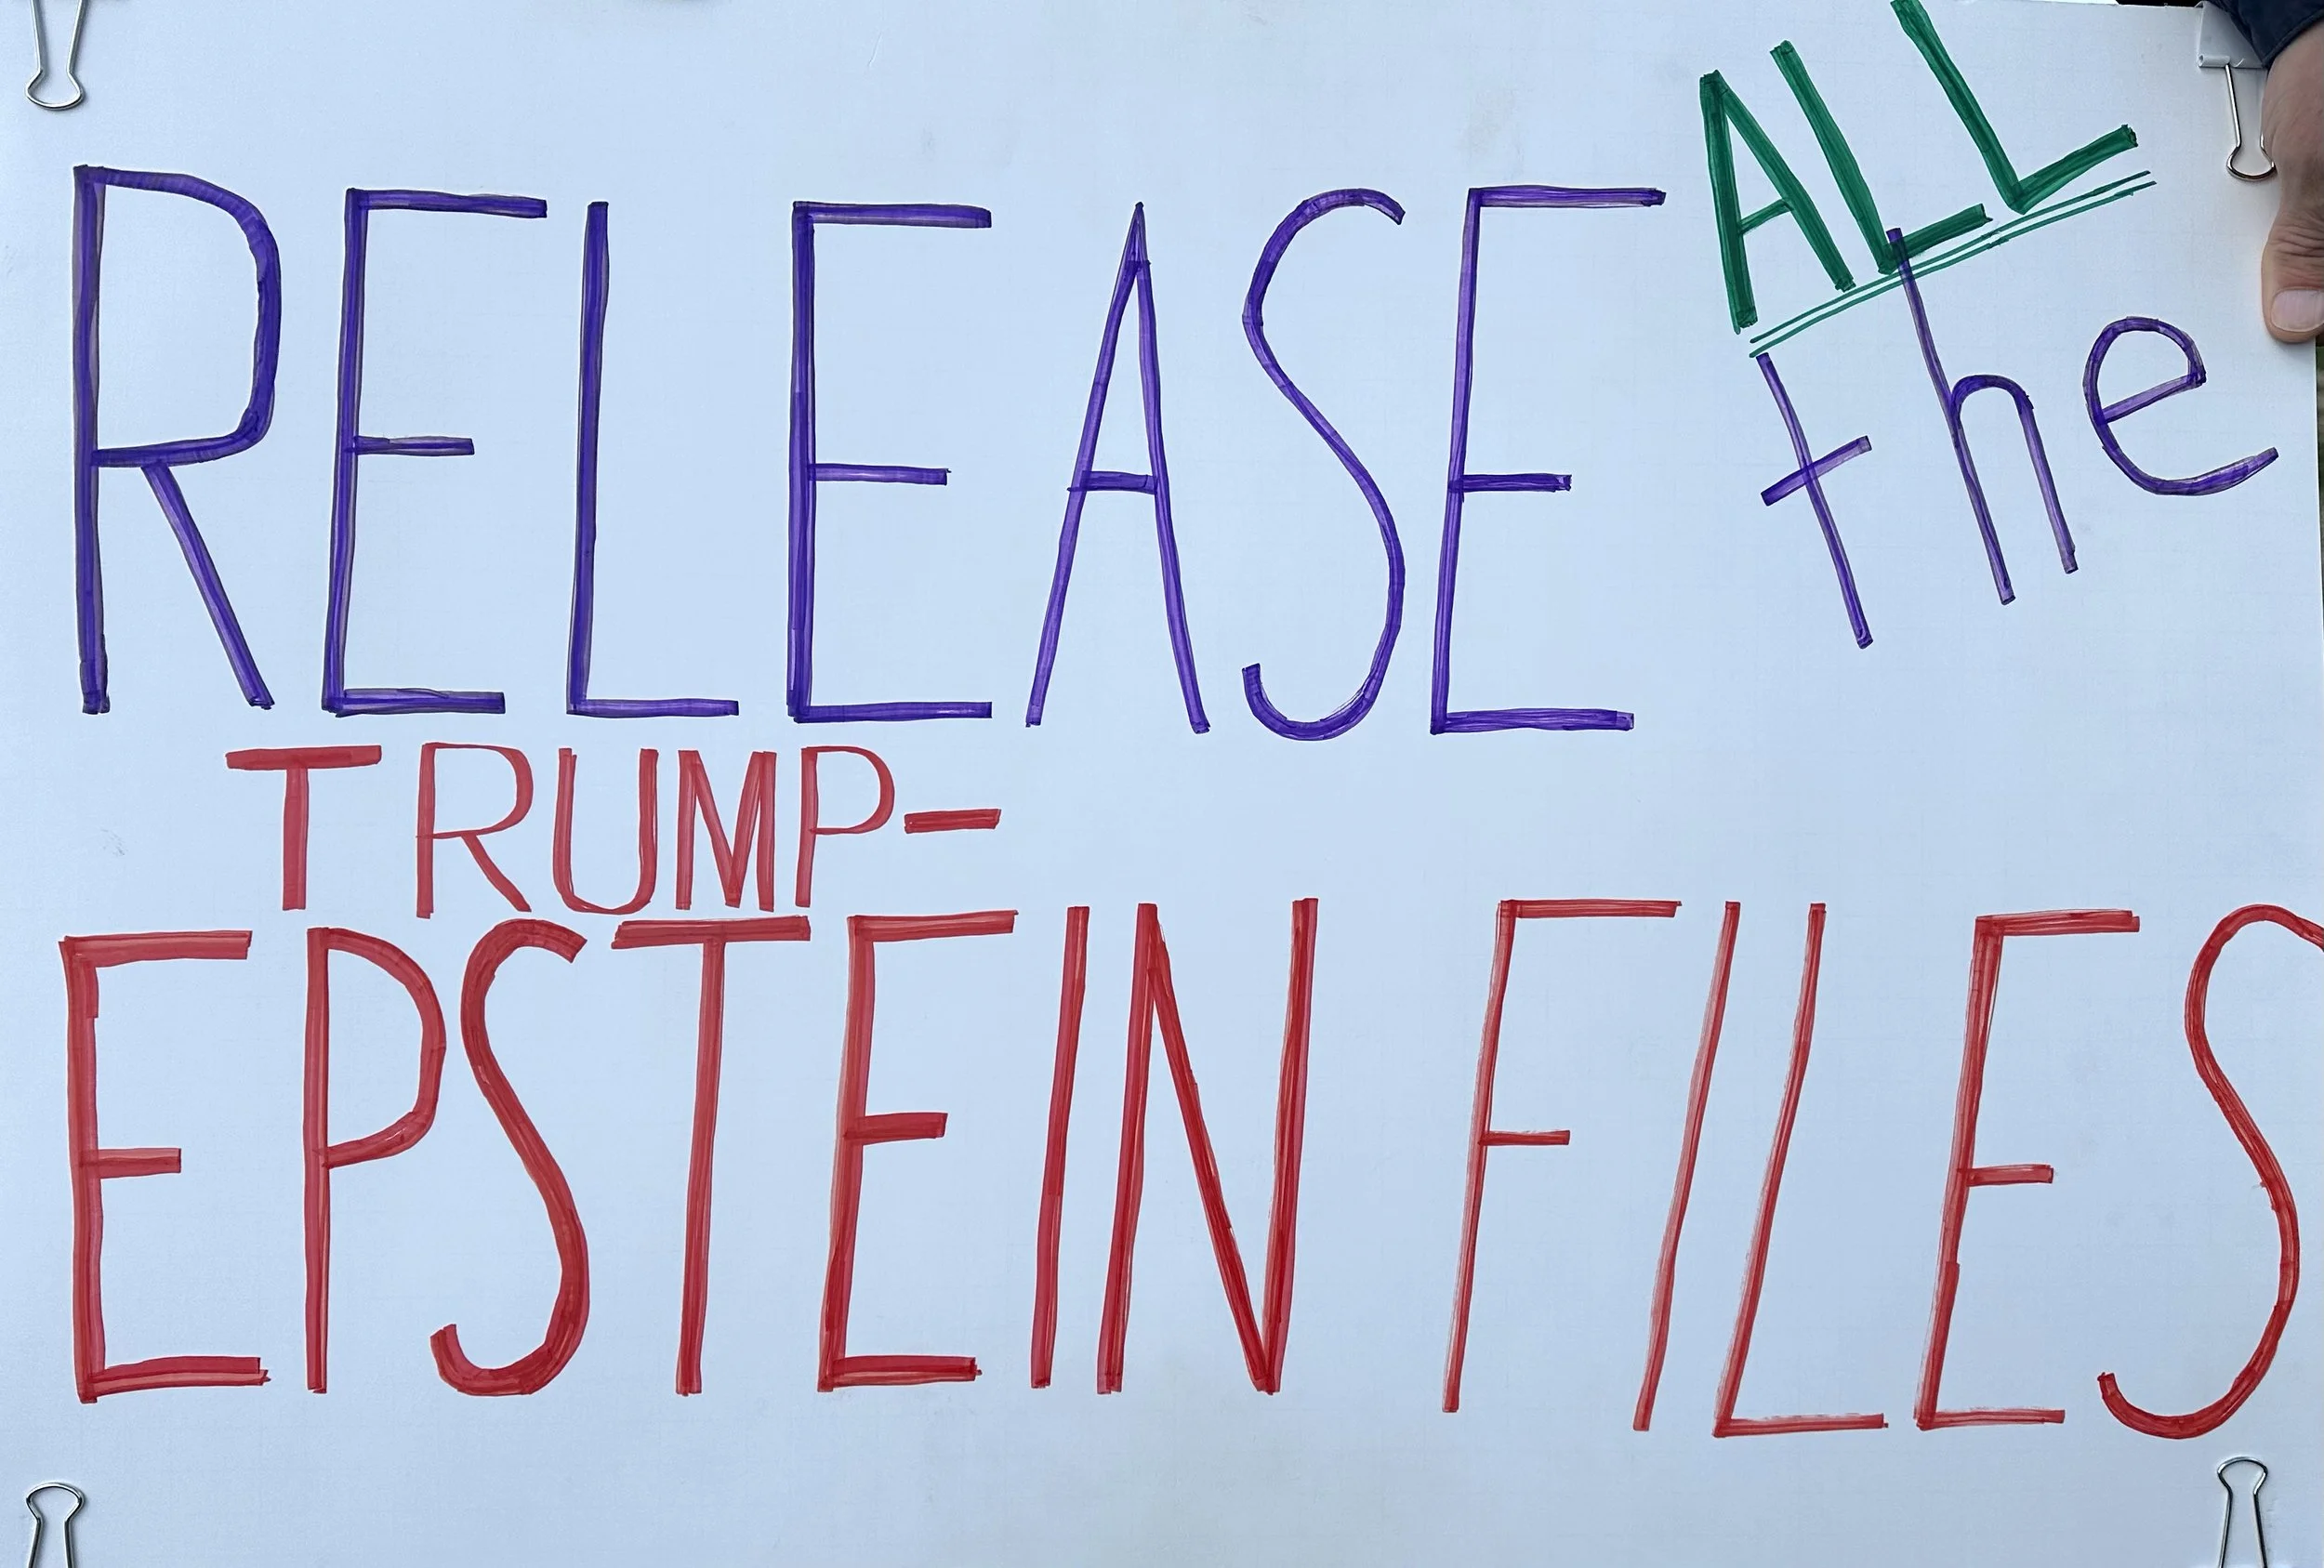 RELEASE ALL the
TRUMP-
EPSTEIN FILES